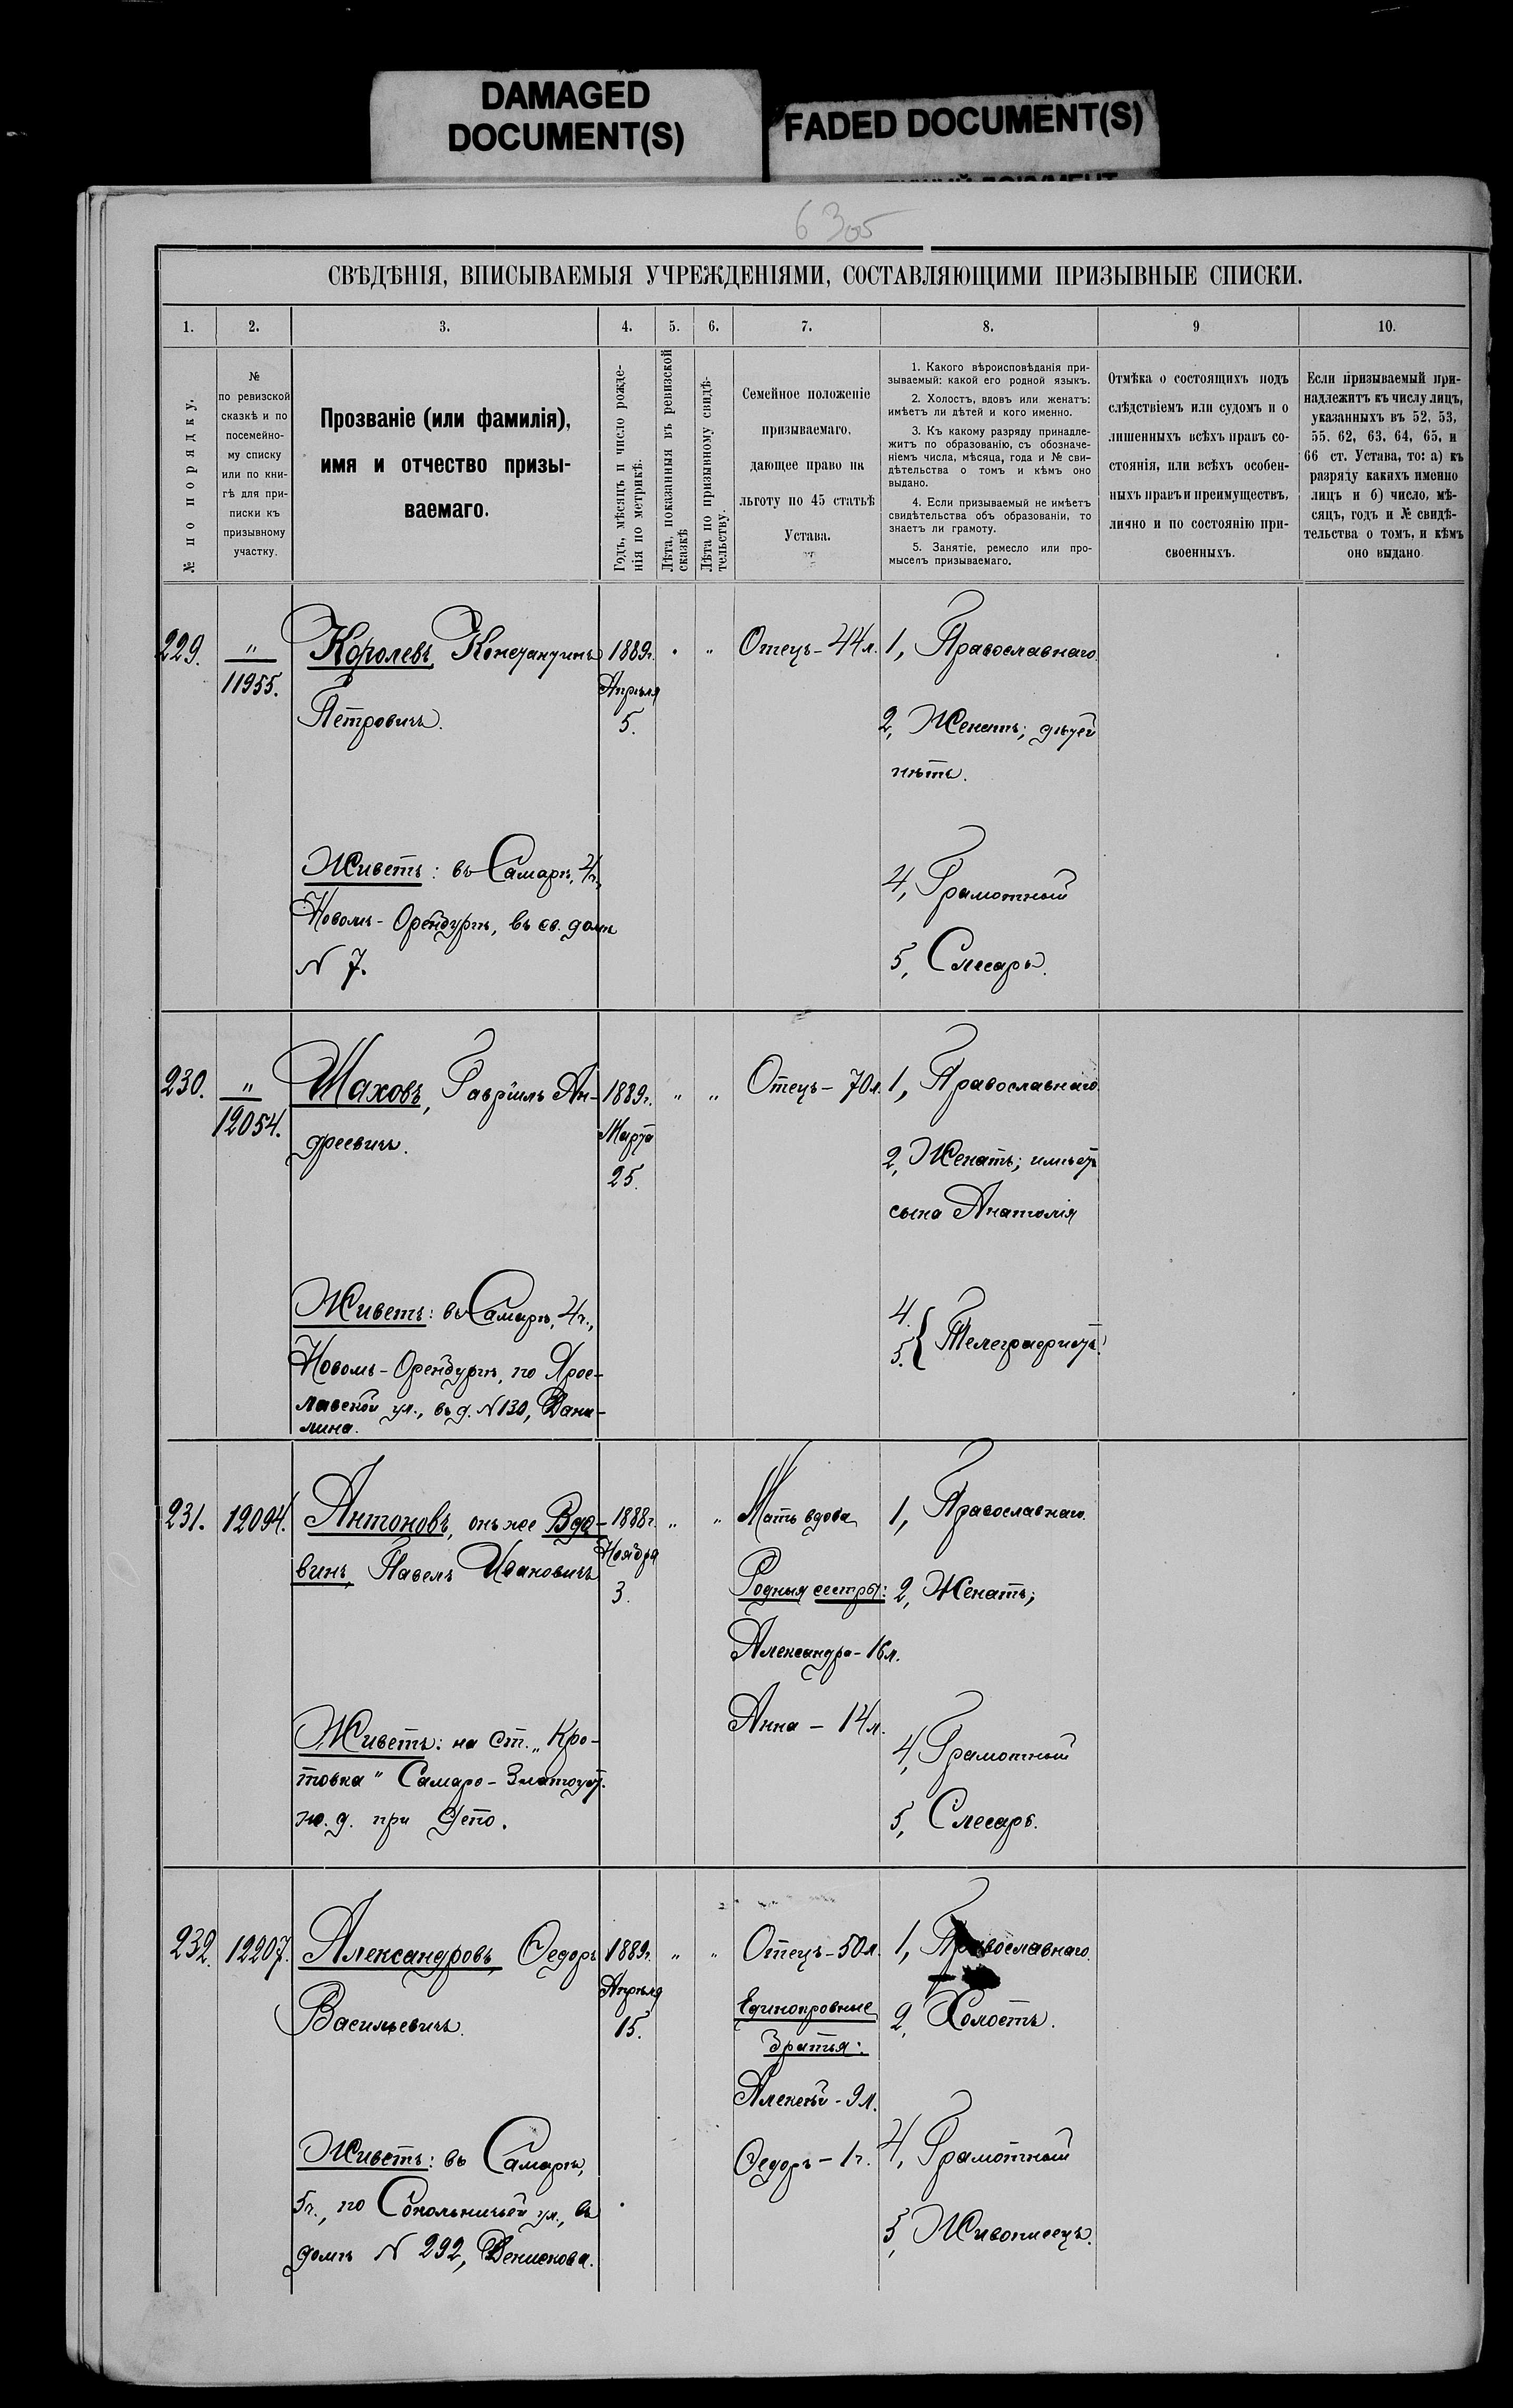 DAMAGED
DOCUMENT(S)
FADED DOCUMENT(S)
6305
СВѢДѢНІЯ, ВПИСЫВАЕМЫЯ УЧРЕЖДЕНІЯМИ, СОСТАВЛЯЮЩИМИ ПРИЗЫВНЫЕ СПИСКИ.
1. 2. 3. 4. 5. 6. 7. 8. 9 10.
№ по порядку.
№
по ревизской
сказкѣ и по
посемейно-
му списку
или по кни-
гѣ для при-
писки къ
призывному
участку.
Прозваніе (или фамилія),
имя и отчество призы-
ваемаго.
Годъ, мѣсяцъ и число рожде-
нія по метрикѣ.
Лѣта, показанныя въ ревизской
сказкѣ
Лѣта по призывному свидѣ-
тельству.
Семейное положеніе
призываемаго,
дающее право на
льготу по 45 статьѣ
Устава.
1. Какого вѣроисповѣданія при-
зываемый: какой его родной языкъ.
2. Холостъ, вдовъ или женатъ:
имѣетъ ли дѣтей и кого именно.
3. Къ какому разряду принадле-
житъ по образованію, съ обозначе-
ніемъ числа, мѣсяца, года и № сви-
дѣтельства о томъ и кѣмъ оно
выдано.
4. Если призываемый не имѣетъ
свидѣтельства объ образованіи, то
знаетъ ли грамоту.
5. Занятіе, ремесло или про-
мыселъ призываемаго.
Отмѣка о состоящихъ подъ
слѣдствіемъ или судомъ и о
лишенныхъ всѣхъ правъ со-
стоянія, или всѣхъ особен-
ныхъ правъ и преимуществъ,
лично и по состоянію при-
своенныхъ.
Если призываемый при-
надлежитъ къ числу лицъ,
указанныхъ въ 52, 53,
55. 62, 63, 64, 65, и
66 ст. Устава, то: а) къ
разряду какихъ именно
лицъ и б) число, мѣ-
сяцъ, годъ и № свидѣ-
тельства о томъ, и кѣмъ
оно выдано.
229.
"
11955.
Королевъ, Константинъ
Петровичъ.
Живетъ: въ Самарѣ, 4ч.,
Новомъ-Оренбургѣ, въ св. домѣ
N 7.
1889г.
Апрѣля
5.
" "
Отецъ - 44 л.
1, Православнаго
2, Женатъ; дѣтей
нѣтъ.
4, Грамотный
5, Слесарь.
230.
"
12054.
Шаховъ, Гавріилъ Ан-
дреевичъ.
Живетъ: въ Самарѣ, 4ч.,
Новомъ-Оренбургѣ, по Яро-
славской ул., въ д. N 130, Дани-
лина.
1889г.
Марта
25.
" "
Отецъ - 70 л.
1, Православнаго
2, Женатъ; имѣетъ
сына Анатолія
4.
5. { Телеграфистъ.
231.
12094.
Антоновъ, онъ же Вдо-
винъ, Павелъ Ивановичъ
Живетъ: на Ст. „Кро-
товка" Самаро-Златоуст.
ж. д. при Депо.
1888г.
Ноября
3.
" "
Мать вдова
Родныя сестры:
Александра - 16 л.
Анна - 14 л.
1, Православнаго.
2, Женатъ;
4, Грамотный
5, Слесарь.
232.
12207.
Александровъ, Ѳедоръ
Васильевичъ.
Живетъ: въ Самарѣ,
5ч., по Сокольничьей ул., въ
домѣ N 292, Денискова.
1889г.
Апрѣля
15.
" "
Отецъ - 50 л.
Единокровные
братья:
Алексѣй - 9 л.
Ѳедоръ - 1 г.
1, Православнаго
2, Холостъ.
4, Грамотный
5, Живописецъ.